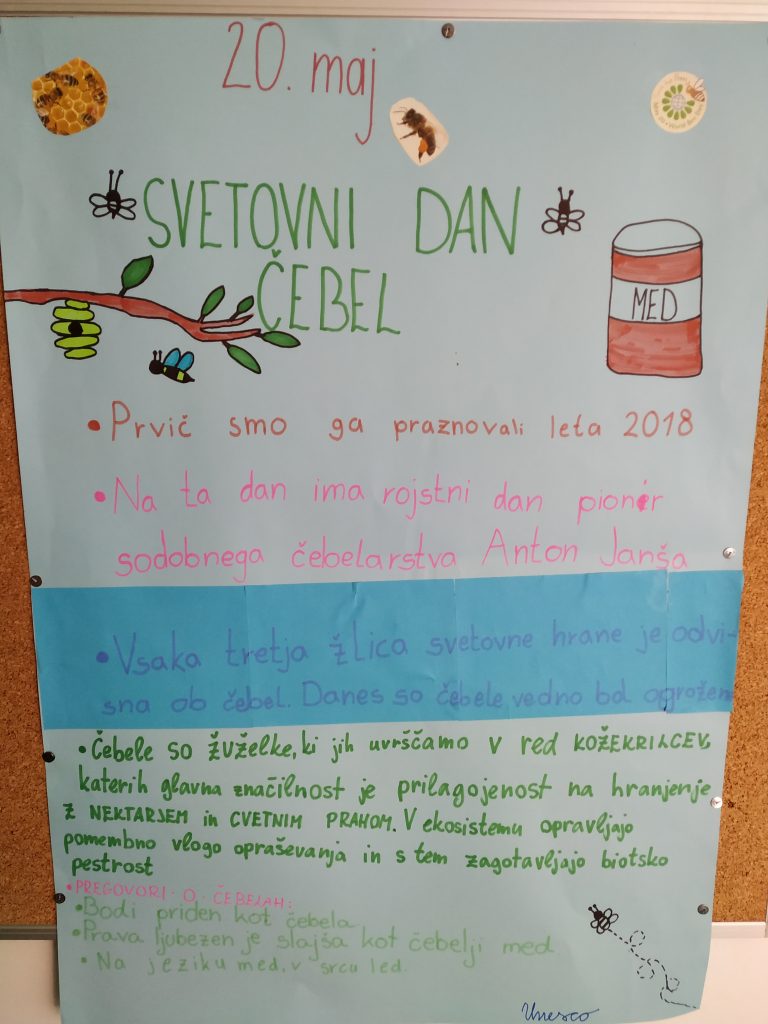 20. maj
SVETOVNI DAN
ČEBEL
MED
• Prvič smo ga praznovali leta 2018
• Na ta dan ima rojstni dan pionir
sodobnega čebelarstva Anton Janša
• Vsaka tretja žlica svetovne hrane je odvi-
sna ob čebel. Danes so čebele vedno bol ogrožen
• Čebele so žuželke, ki jih uvrščamo v red KOŽEKRILCEV,
katerih glavna značilnost je prilagojenost na hranjenje
z NEKTARJEM in CVETNIM PRAHOM. V ekosistemu opravljajo
pomembno vlogo opraševanja in s tem zagotavljajo biotsko
pestrost
• PREGOVORI O ČEBELAH:
• Bodi priden kot čebela
• Prava ljubezen je slajša kot čebelji med
• Na jeziku med, v srcu led.
Unesco